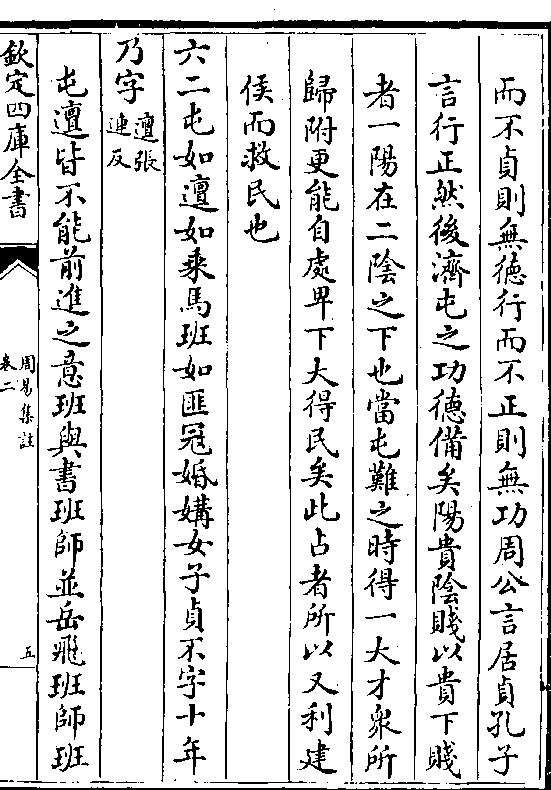 而不貞則無德行而不正則無功周公言居貞孔子
言行正然後濟屯之功德備矣陽貴陰賤以貴下賤
者一陽在二陰之下也當屯難之時得一大才衆所
歸附更能自處卑下大得民矣此占者所以又利建
侯而救民也
六二屯如邅如乘馬班如匪冦婚媾女子貞不字十年
乃字
邅張
連反
屯邅皆不能前進之意班與書班師並岳飛班師班
欽定四庫全書
周易集註
卷二
五